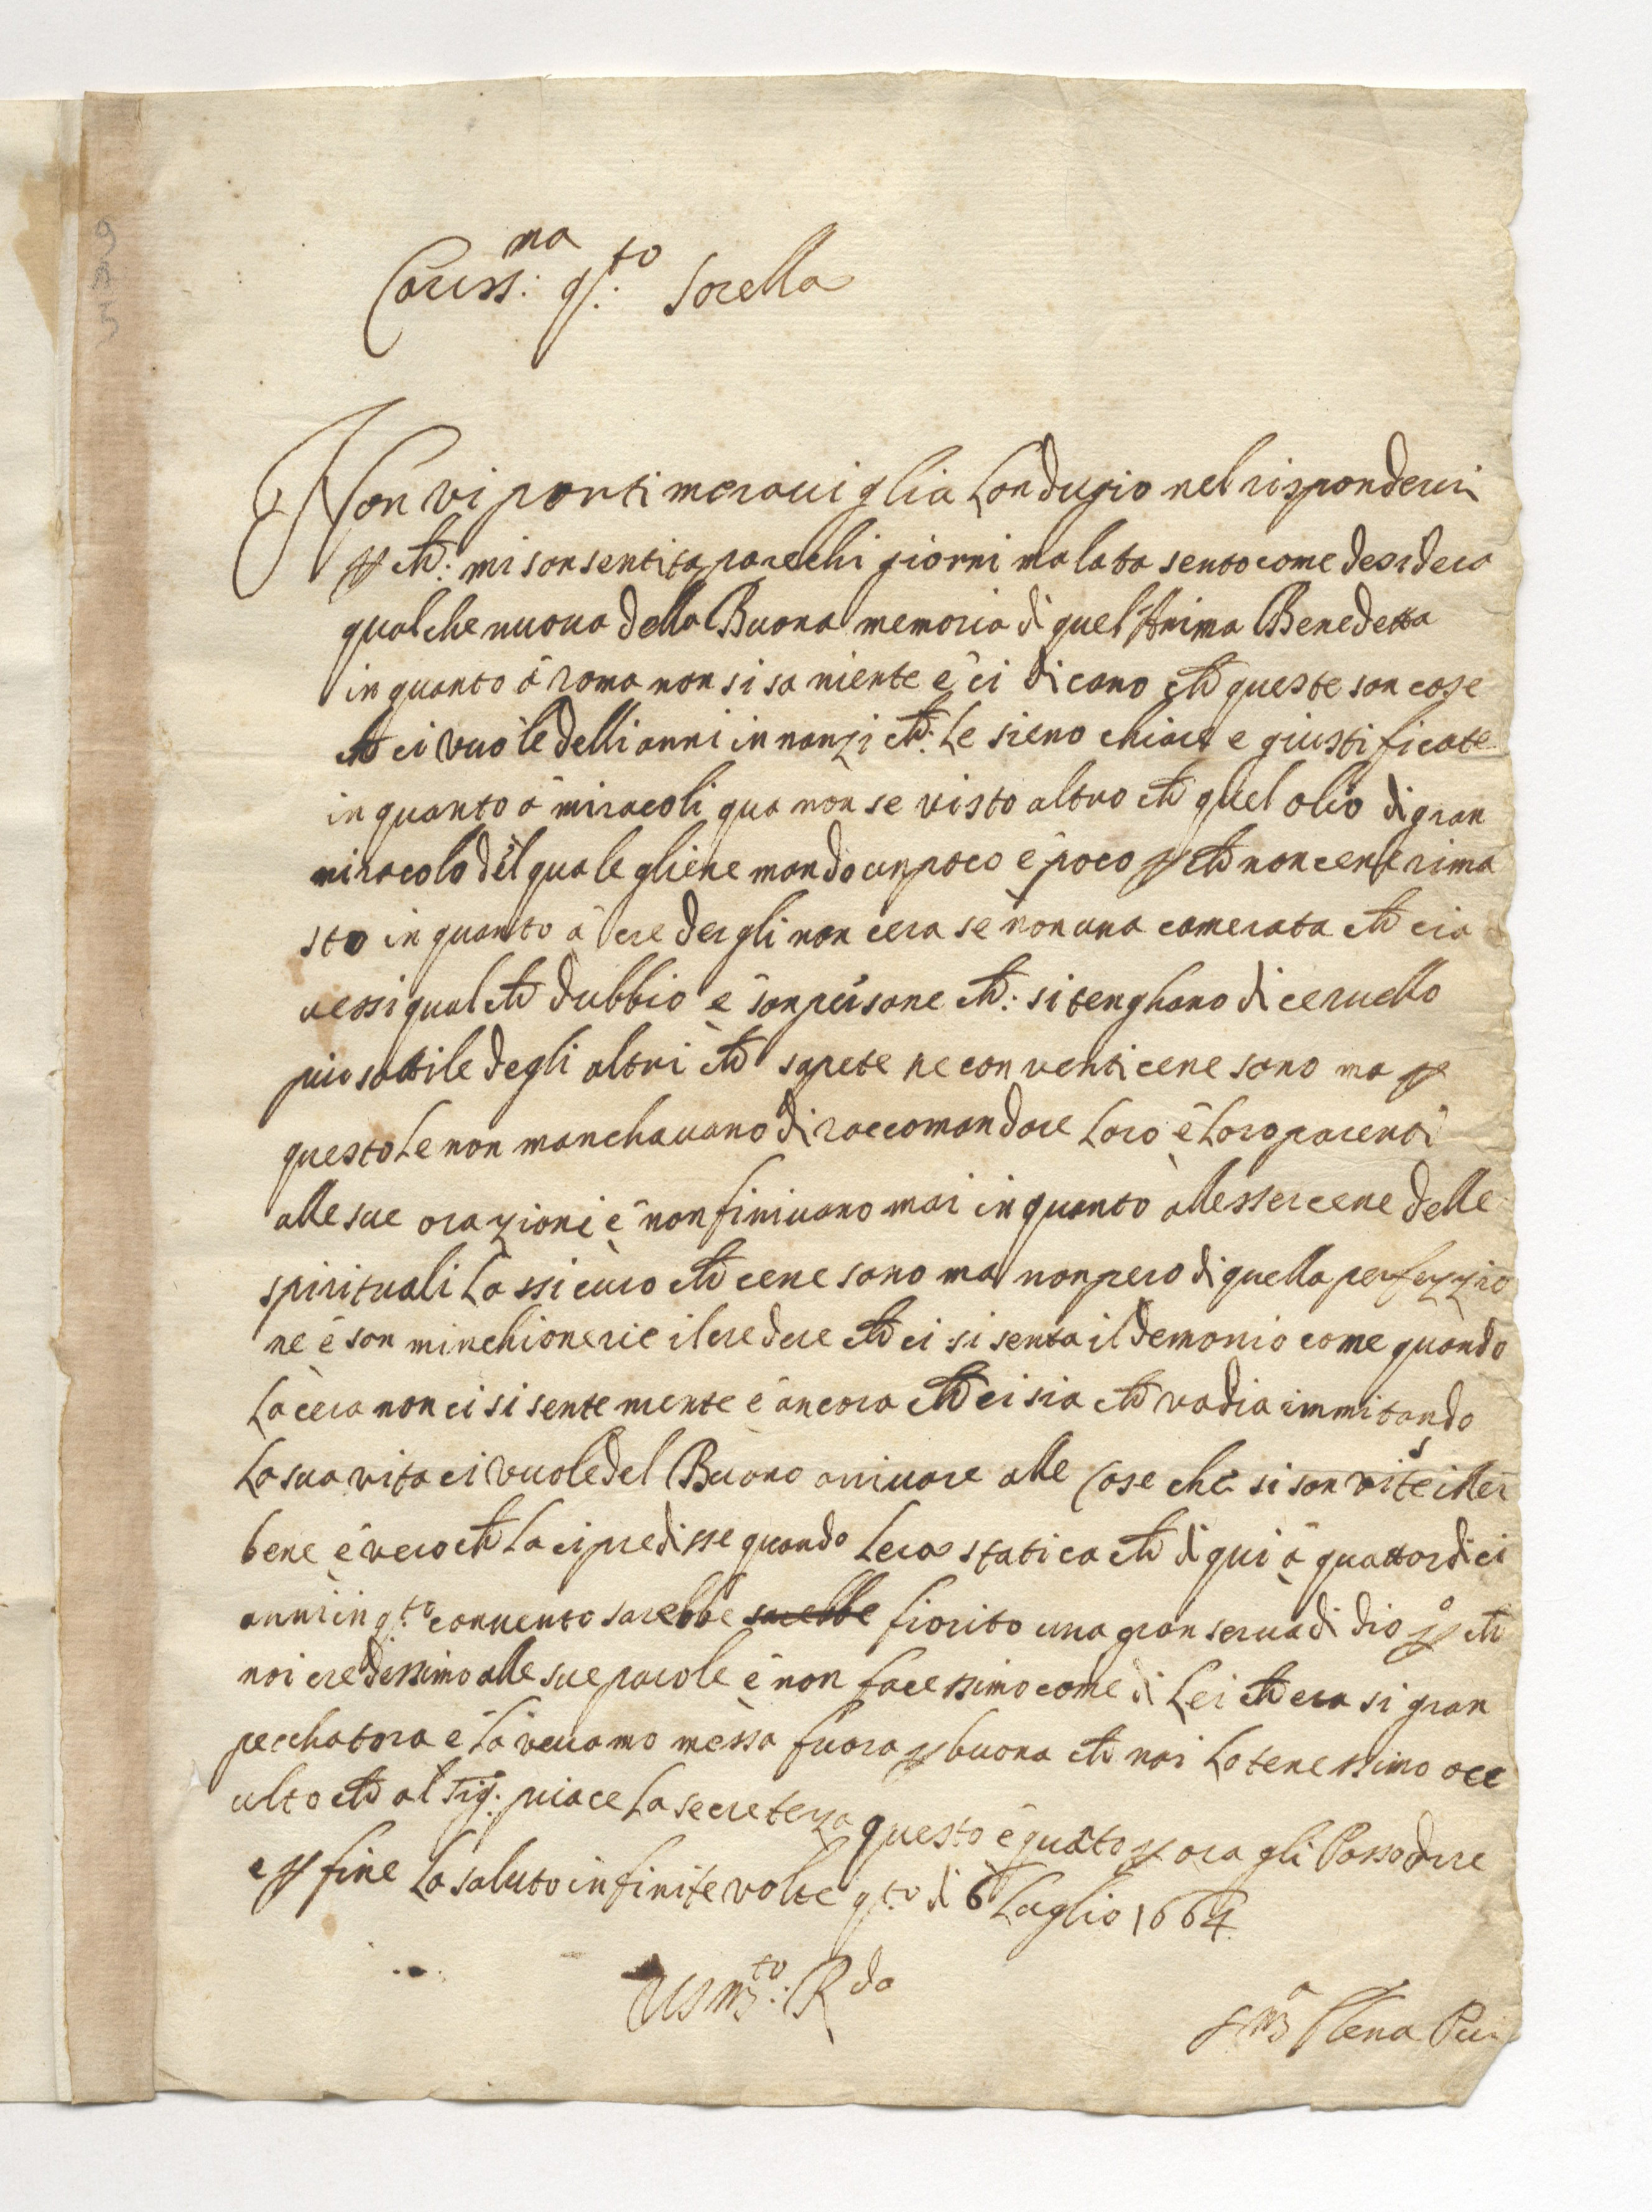 Cariss:ma q:to Sorella
Non vi porti meraviglia Londugio nel rispondervi
p che: mi son sentita parechi giorni malata sento come desidera
qualche nuova della Buona memoria di quel'Anima Benedetta
in quanto à roma non si sa niente è ci dicano che queste son cose
che ci vuole delli anni in nanzi che: Le sieno chiare e giustificate
in quanto à miracoli qua non se visto altro che quel olio di gran
miracolo del quale gliene mando un poco è poco p che non cenè rima
sto in quanto à credergli non cera se non una camerata che cia
vessi qualche dubbio è son persone che: si tenghano di ceruello
piu sottile degli altri che sapete ne conventi cene sono ma p
questo Le non manchauano di raccomandare Loro è Loro parenti
alle sue orazioni è non finivano mai in quanto all essercene delle
spirituali Lassicuro che cene sono ma non pero di quella perfezzio
ne è son minchionerie il credere che ci si senta il demonio come quando
Lacera non ci si sente niente è ancora che ci sia che vadia immitando
La sua vita ci vuole del Buono arrivare alle Cose che si son viste illei
bene è vero che La ci predisse quando Lera statica che di qui à quattordici
anni in q:to convento sarebbe sarebbe fiorito una gran serva di dio p che
noi credessimo alle sue parole è non facessimo come di Lei che era si gran
pecchatora è La vevamo messa fuora p buona che noi La tenessimo occ
ulto che al Sig: piace La secretezza questo è quāto p ora gli Posso dire
e p fine La saluto infinite volte q:to di 6 Luglio 1664
VS m:to R da